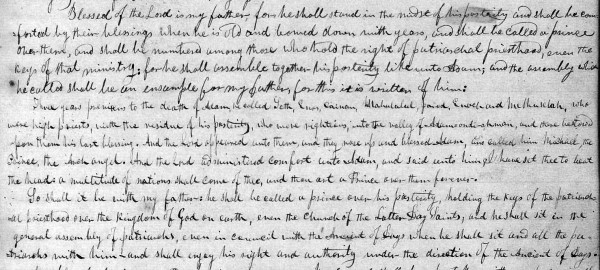 Blessed of the Lord is my father, for he shall stand in the midst of his posterity and shall be com-
forted by their blessings when he is old and bowed down with years, and shall be called a prince
over them, and shall be numbered among those who hold the right of patriarchal priesthood, even the
keys of that ministry: for he shall assemble together his posterity like unto Adam; and the assembly which
he called shall be an ensample for my father, for thus it is written of him:
Three years previous to the death of Adam, he called Seth, Enos, Cainan, Mahalaleel, Jared, Enoch and Methuselah, who
were high priests, with the residue of his posterity, who were righteous, into the valley of Adam-ondi-ahman, and there bestowed
upon them his last blessing. And the Lord appeared unto them, and they rose up and blessed Adam, and called him Michael, the
Prince, the Archangel. And the Lord administered comfort unto Adam, and said unto him, I have set thee to be at
the head: a multitude of nations shall come of thee, and thou art a Prince over them forever.
So shall it be with my father: he shall be called a prince over his posterity, holding the keys of the patriarch-
al priesthood over the Kingdom of God on earth, even the Church of the Latter Day Saints; and he shall sit in the
general assembly of patriarchs, even in council with the Ancient of Days when he shall sit and all the pa-
triarchs with him—and shall enjoy his right and authority under the direction of the Ancient of Days.